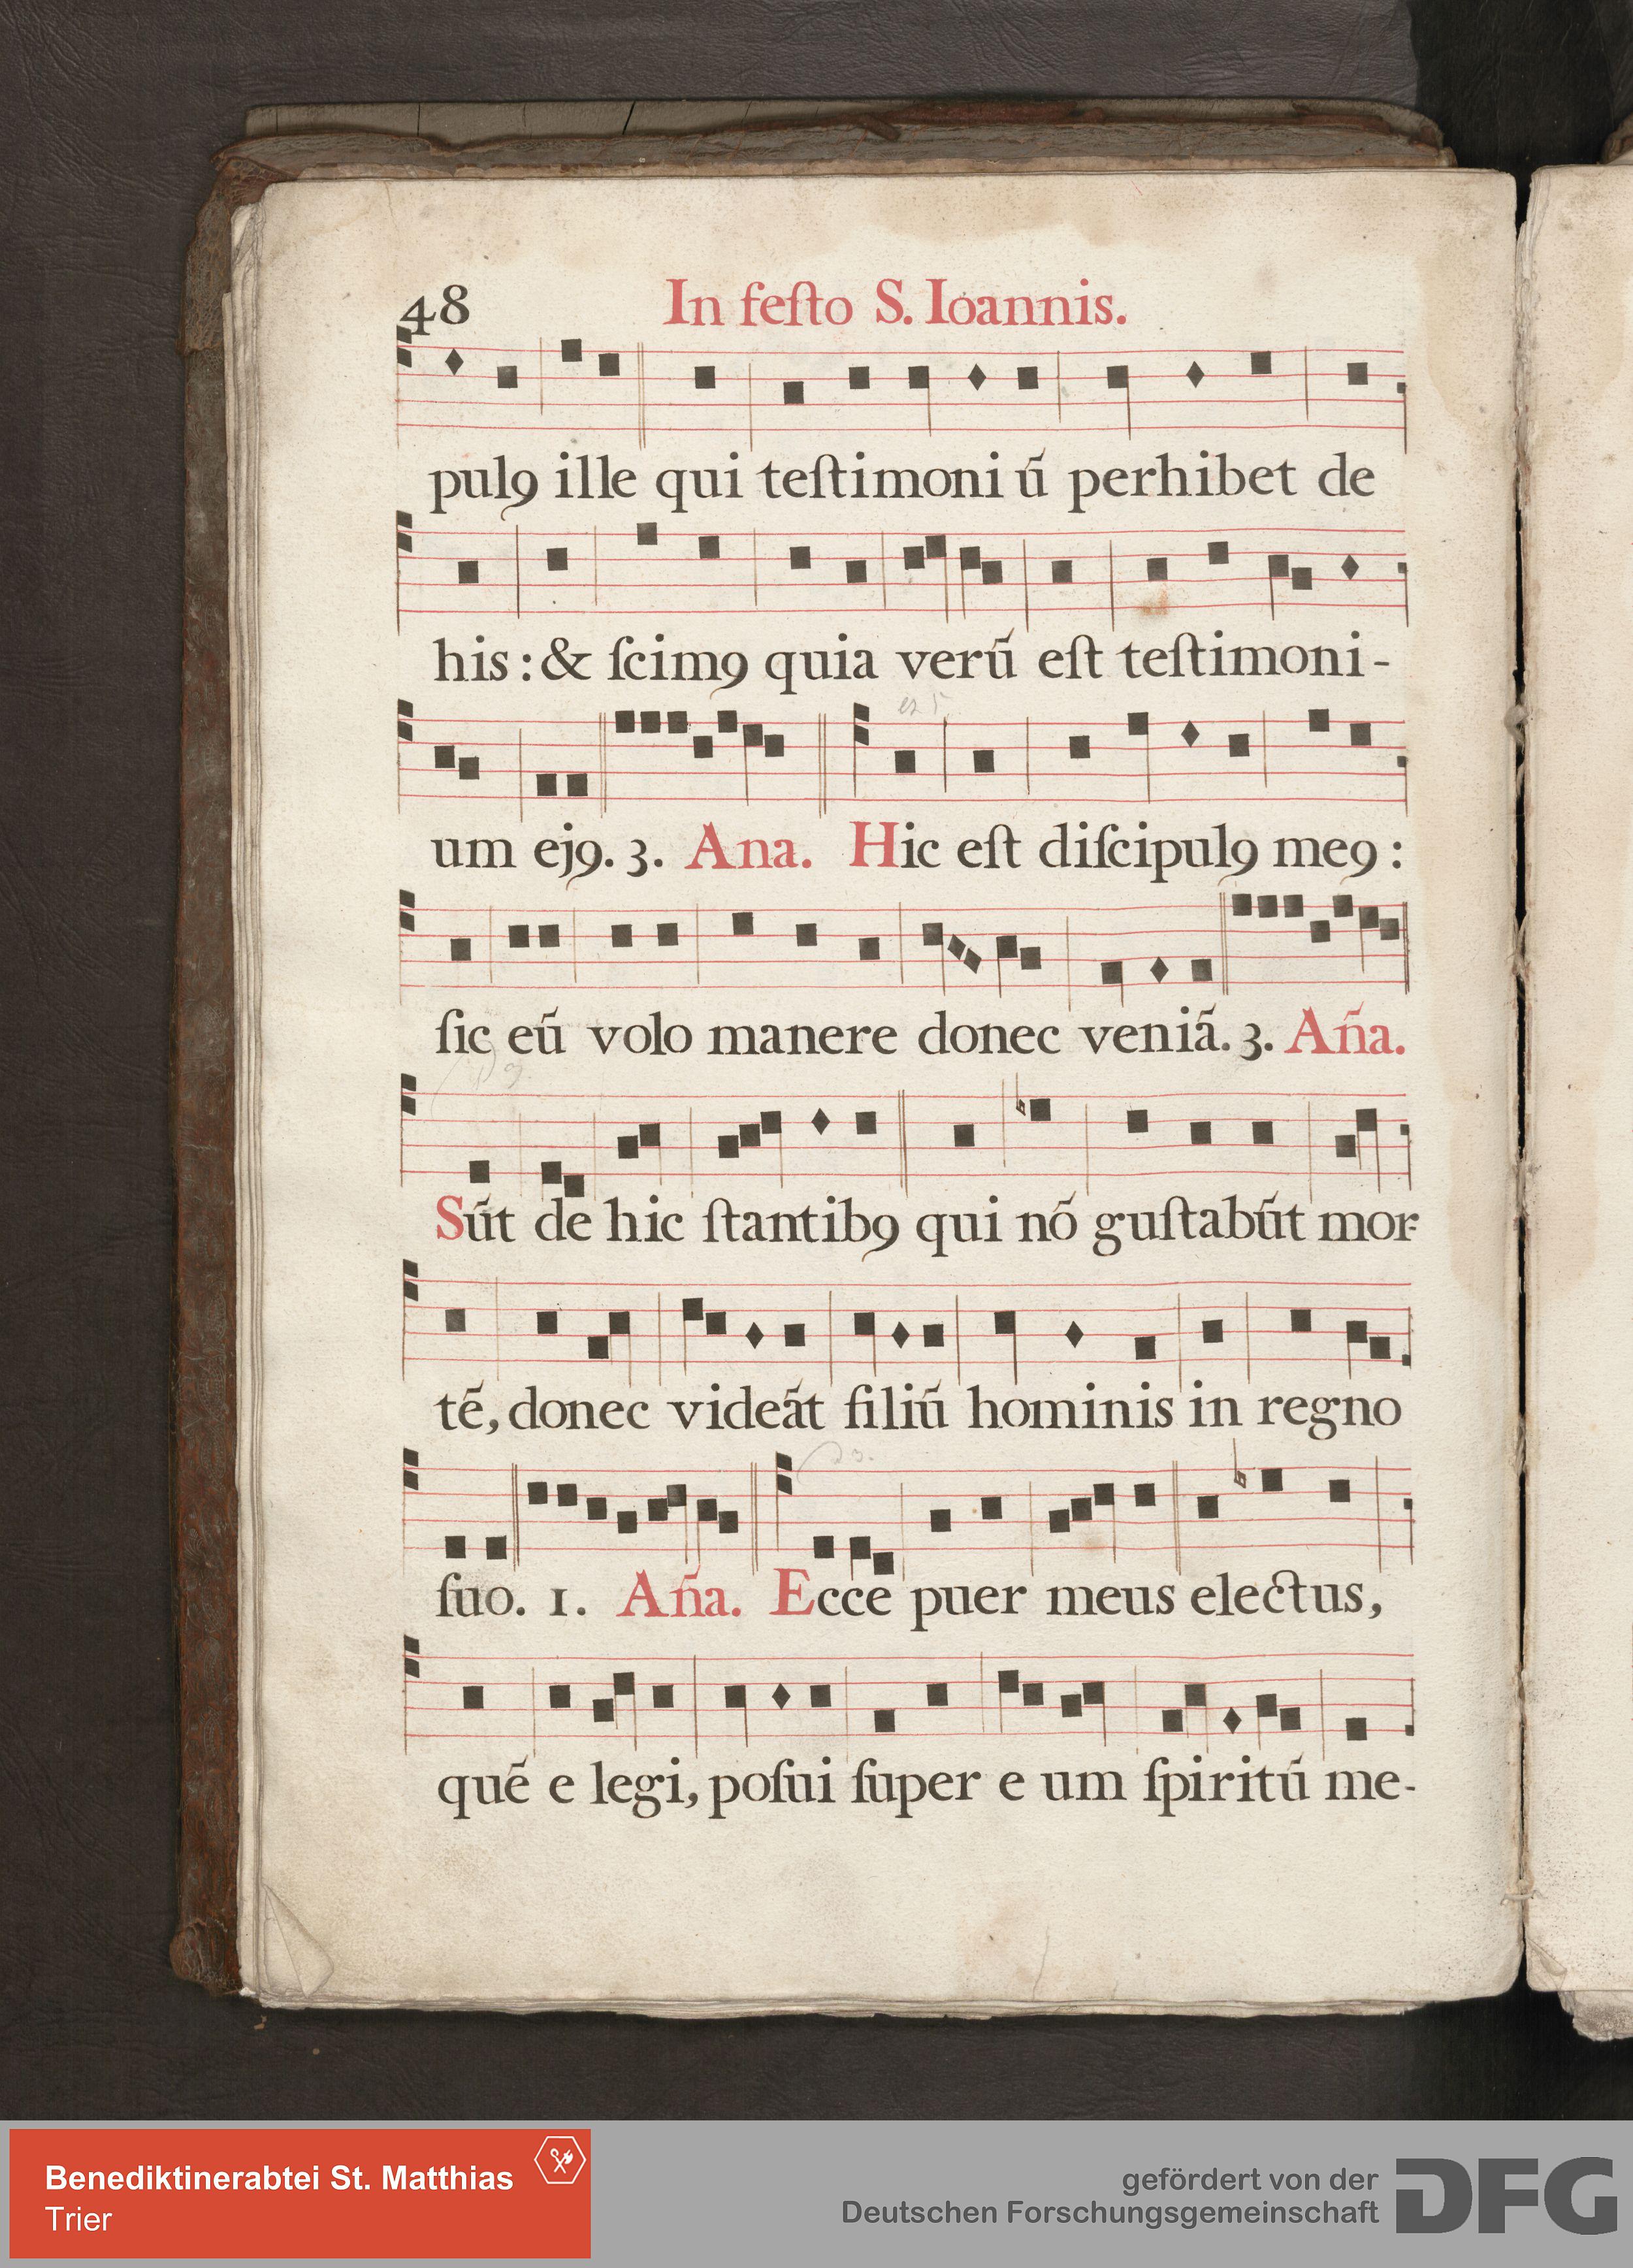 48 In feſto S. Ioannis.
pulꝯ ille qui teſtimoni ū perhibet de
his: & ſcimꝯ quia verū eſt teſtimoni-
um ejꝯ. 3. Ana. Hic eſt diſcipulꝯ meꝯ:
ſic eū volo manere donec veniā. 3. Ana̅.
Sūt de hic ſtantibꝯ qui nō guſtabūt mor-
tē, donec videāt filiū hominis in regno
ſuo. 1. Ana̅. Ecce puer meus electus,
quē e legi, poſui ſuper e um ſpiritū me-
Benediktinerabtei St. Matthias
Trier
gefördert von der
Deutschen Forschungsgemeinschaft
DFG